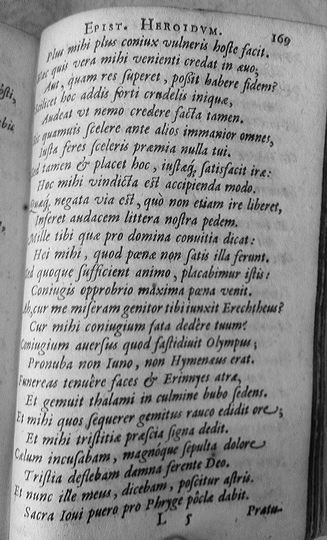 EPIST. HEROIDVM. 169
Plus mihi plus coniux vulneris hoste facit.
quis vera mihi venienti credat in æuo,
Aut, quam res superet, possit habere fidem?
Scilicet hoc addis forti crudelis iniquæ,
Audeat vt nemo credere facta tamen.
quamuis scelere ante alios immanior omnes,
Iusta feres sceleris præmia nulla tui.
tamen & placet hoc, iustæq; satisfacit iræ:
Hoc mihi vindicta est accipienda modo.
negata via est, quò non etiam ire liberet,
Inferet audacem littera nostra pedem.
Mille tibi quæ pro domina conuitia dicat:
Hei mihi, quod pœnæ non satis illa ferunt.
quoque sufficient animo, placabimur istis:
Coniugis opprobrio maxima pœna venit.
Ah, cur me miseram genitor tibi iunxit Erechtheus?
Cur mihi coniugium fata dedêre tuum?
Coniugium auersus quod fastidiuit Olympus;
Pronuba non Iuno, non Hymenæus erat.
Funereas tenuêre faces & Erinnyes atræ,
Et gemuit thalami in culmine bubo sedens.
Et mihi quos sequerer gemitus rauco edidit ore;
Et mihi tristitiæ præscia signa dedit.
Cælum incusabam, magnóque sepulta dolore
Tristia deflebam damna ferente Deo.
Et nunc ille meus, dicebam, poscitur astris.
Sacra Ioui puero pro Phryge pôcla dabit.
L 5 Pratu-